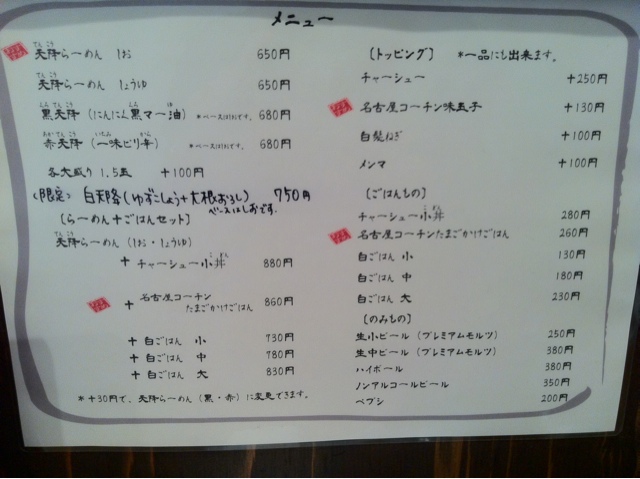 メニュー
天降らーめん しお 650円
天降らーめん しょうゆ 650円
黒天降 (にんにん黒マー油) *ベースはしおです。 680円
赤天降 (一味ピリ辛) *ベースはしおです。 680円
各大盛り 1.5玉 +100円
〈限定〉 白天降(ゆずこしょう+大根おろし) 750円
ベースはしおです。
[らーめん+ごはんセット]
天降らーめん (しお・しょうゆ)
+ チャーシュー小丼 880円
+ 名古屋コーチン
たまごかけごはん 860円
+ 白ごはん 小 730円
+ 白ごはん 中 780円
+ 白ごはん 大 830円
*+30円で、天降らーめん (黒・赤) に変更できます。
[トッピング] *一品にも出来ます。
チャーシュー +250円
名古屋コーチン味玉子 +130円
白髪ねぎ +100円
メンマ +100円
[ごはんもの]
チャーシュー小丼 280円
名古屋コーチンたまごかけごはん 260円
白ごはん 小 130円
白ごはん 中 180円
白ごはん 大 230円
[のみもの]
生小ビール (プレミアムモルツ) 250円
生中ビール (プレミアムモルツ) 380円
ハイボール 380円
ノンアルコールビール 350円
ペプシ 200円